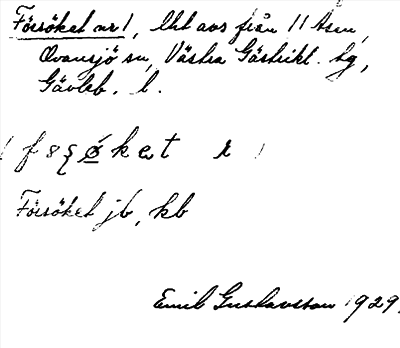 Försöket nr 1, lht avs från 11 Åsen,
Ovansjö sn, Västra Gästrikl. tg,
Gävleb. l.
Försöket jb, kb
Emil Gustavsson 1929.